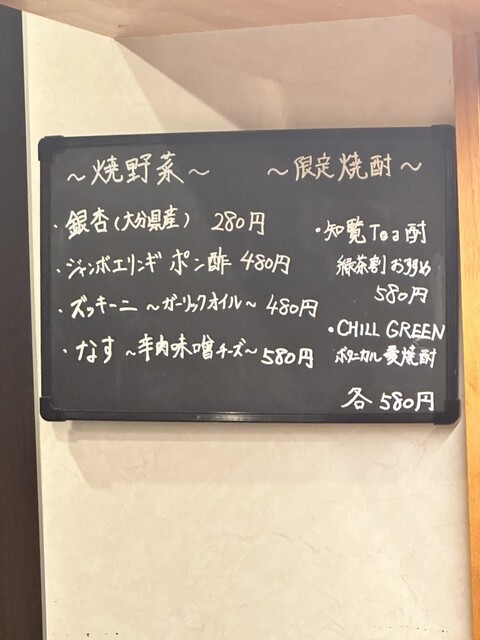 ～焼野菜～
・銀杏(大分県産) 280円
・ジャンボエリンギ ポン酢 480円
・ズッキーニ ～ガーリックオイル～ 480円
・なす ～辛肉味噌チーズ～ 580円
～限定焼酎～
・知覧Tea酎
緑茶割 おすすめ
580円
・CHILL GREEN
ボタニカル麦焼酎
各 580円